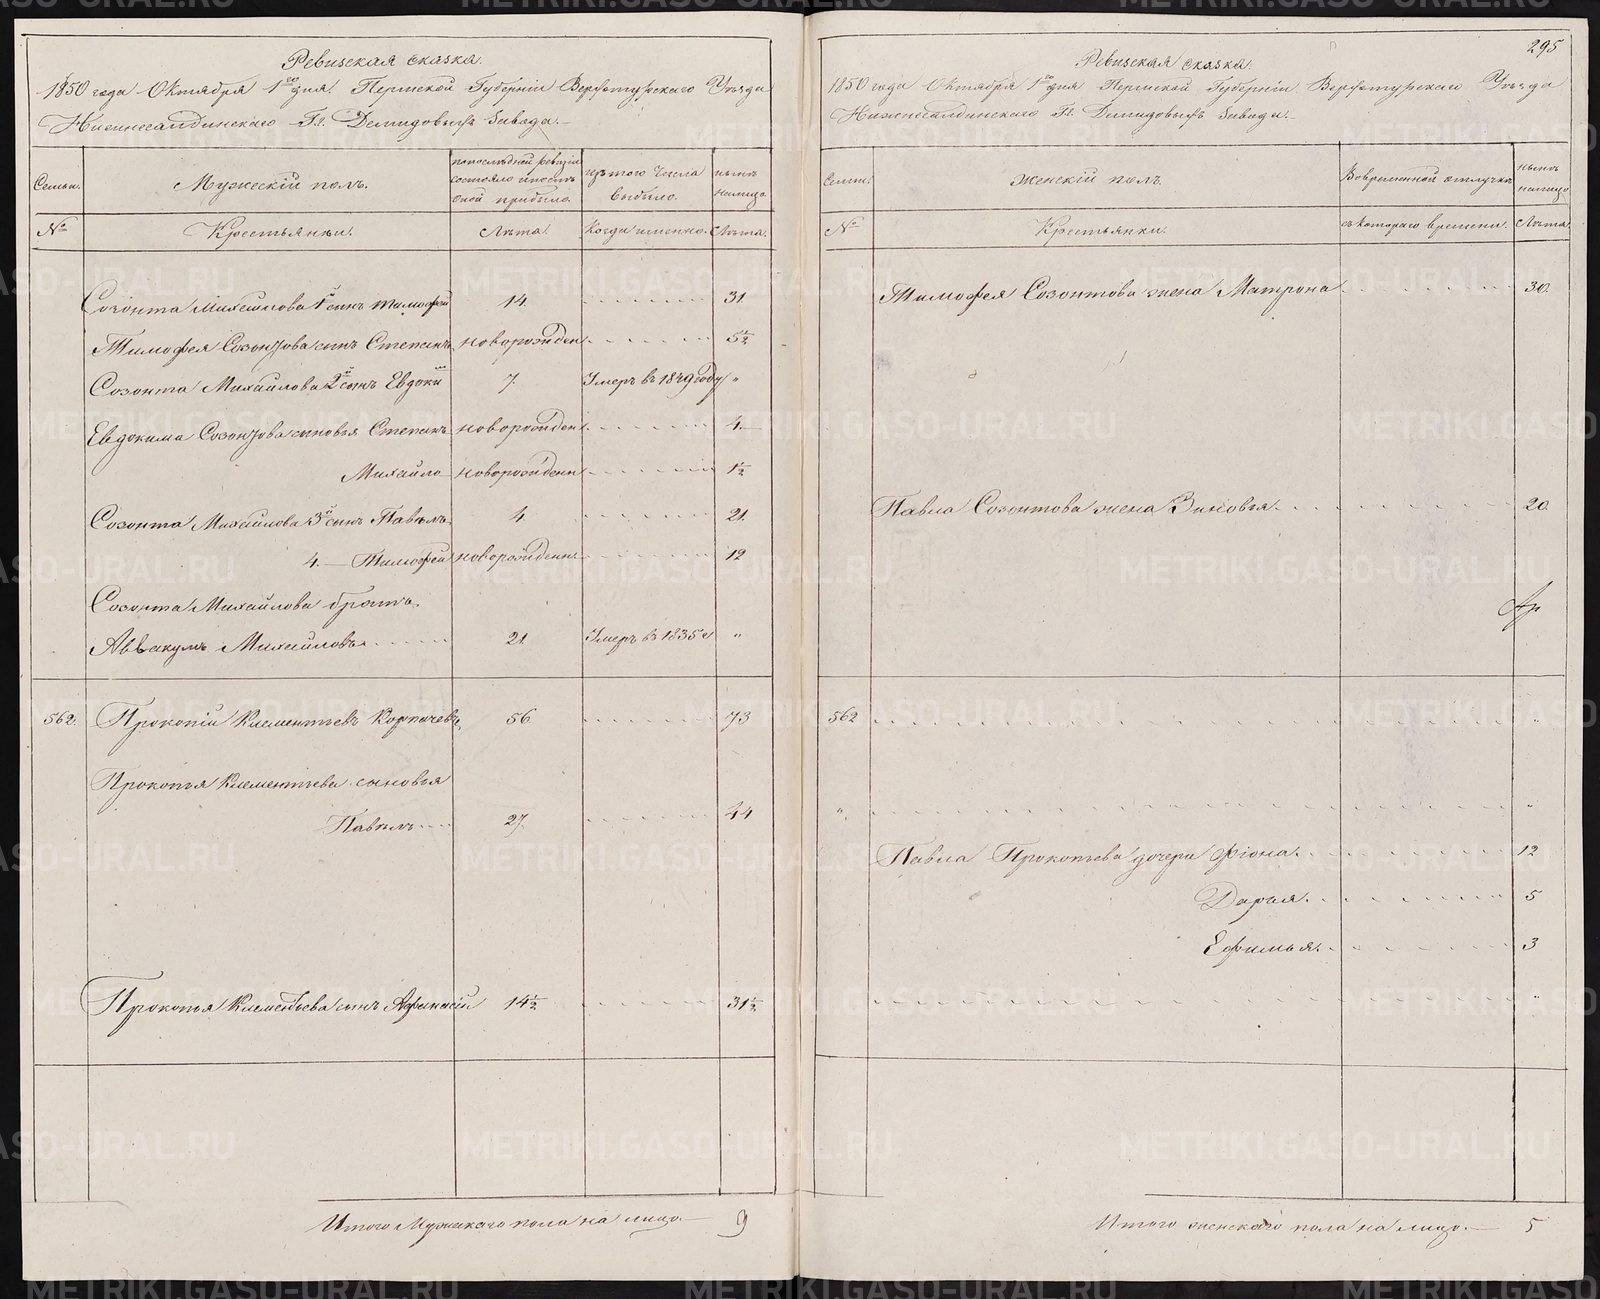 Ревизская сказка.
1850 года Октября 1го дня. Пермской Губерніи Верхотурскаго Уѣзда
Нижнесалдинскаго Гг. Демидовыхъ Завода.
Семьи. Мужескій полъ. по послѣдней ревизіи состояло и послѣ оной прибыло. изъ того числа выбыло. нынѣ на лицо.
№ Крестьяне. Лѣта. Когда именно. Лѣта.
Созонта Михайлова 1й сынъ Тимофей 14. 31
Тимофея Созонтова сынъ Степанъ новорожден 5½
Созонта Михайлова 2й сынъ Евдоким 7. Умеръ въ 1849 году "
Евдокима Созонтова сыновья Степанъ новорожден 4.
Михайло новорожденн 1½
Созонта Михайлова 3й сынъ Павелъ 4. 21.
4. Тимофей новорожденн 12
Созонта Михайлова братъ
Аввакумъ Михайловъ 21. Умеръ въ 1835 г "
562. Прокопій Клементьевъ Корпачевъ 56. 73
Прокопья Клементьева сыновья
Павелъ 27. 44
Прокопья Клементьева сынъ Афанасій 14½ 31½
Итого Мужескаго пола на лицо. 9
295
Ревизская сказка.
1850 года Октября 1го дня Пермской Губерніи Верхотурскаго Уѣзда
Нижнесалдинскаго Гг. Демидовыхъ Завода.
Семьи. Женскій полъ. Во временной отлучкѣ нынѣ на лицо
№ Крестьянки. съ котораго времени. Лѣта.
Тимофея Созонтова жена Матрона 30.
Павла Созонтова жена Зиновья 20.
562 "
" "
Павла Прокопьева дочери Фіона. 12
Дарья. 5
Ефимья. 3
"
Итого женскаго пола на лицо. 5
METRIKI.GASO-URAL.RU